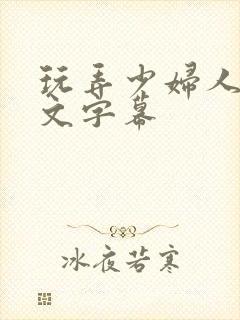 玩弄少婦人
文字幕
冰夜若寒